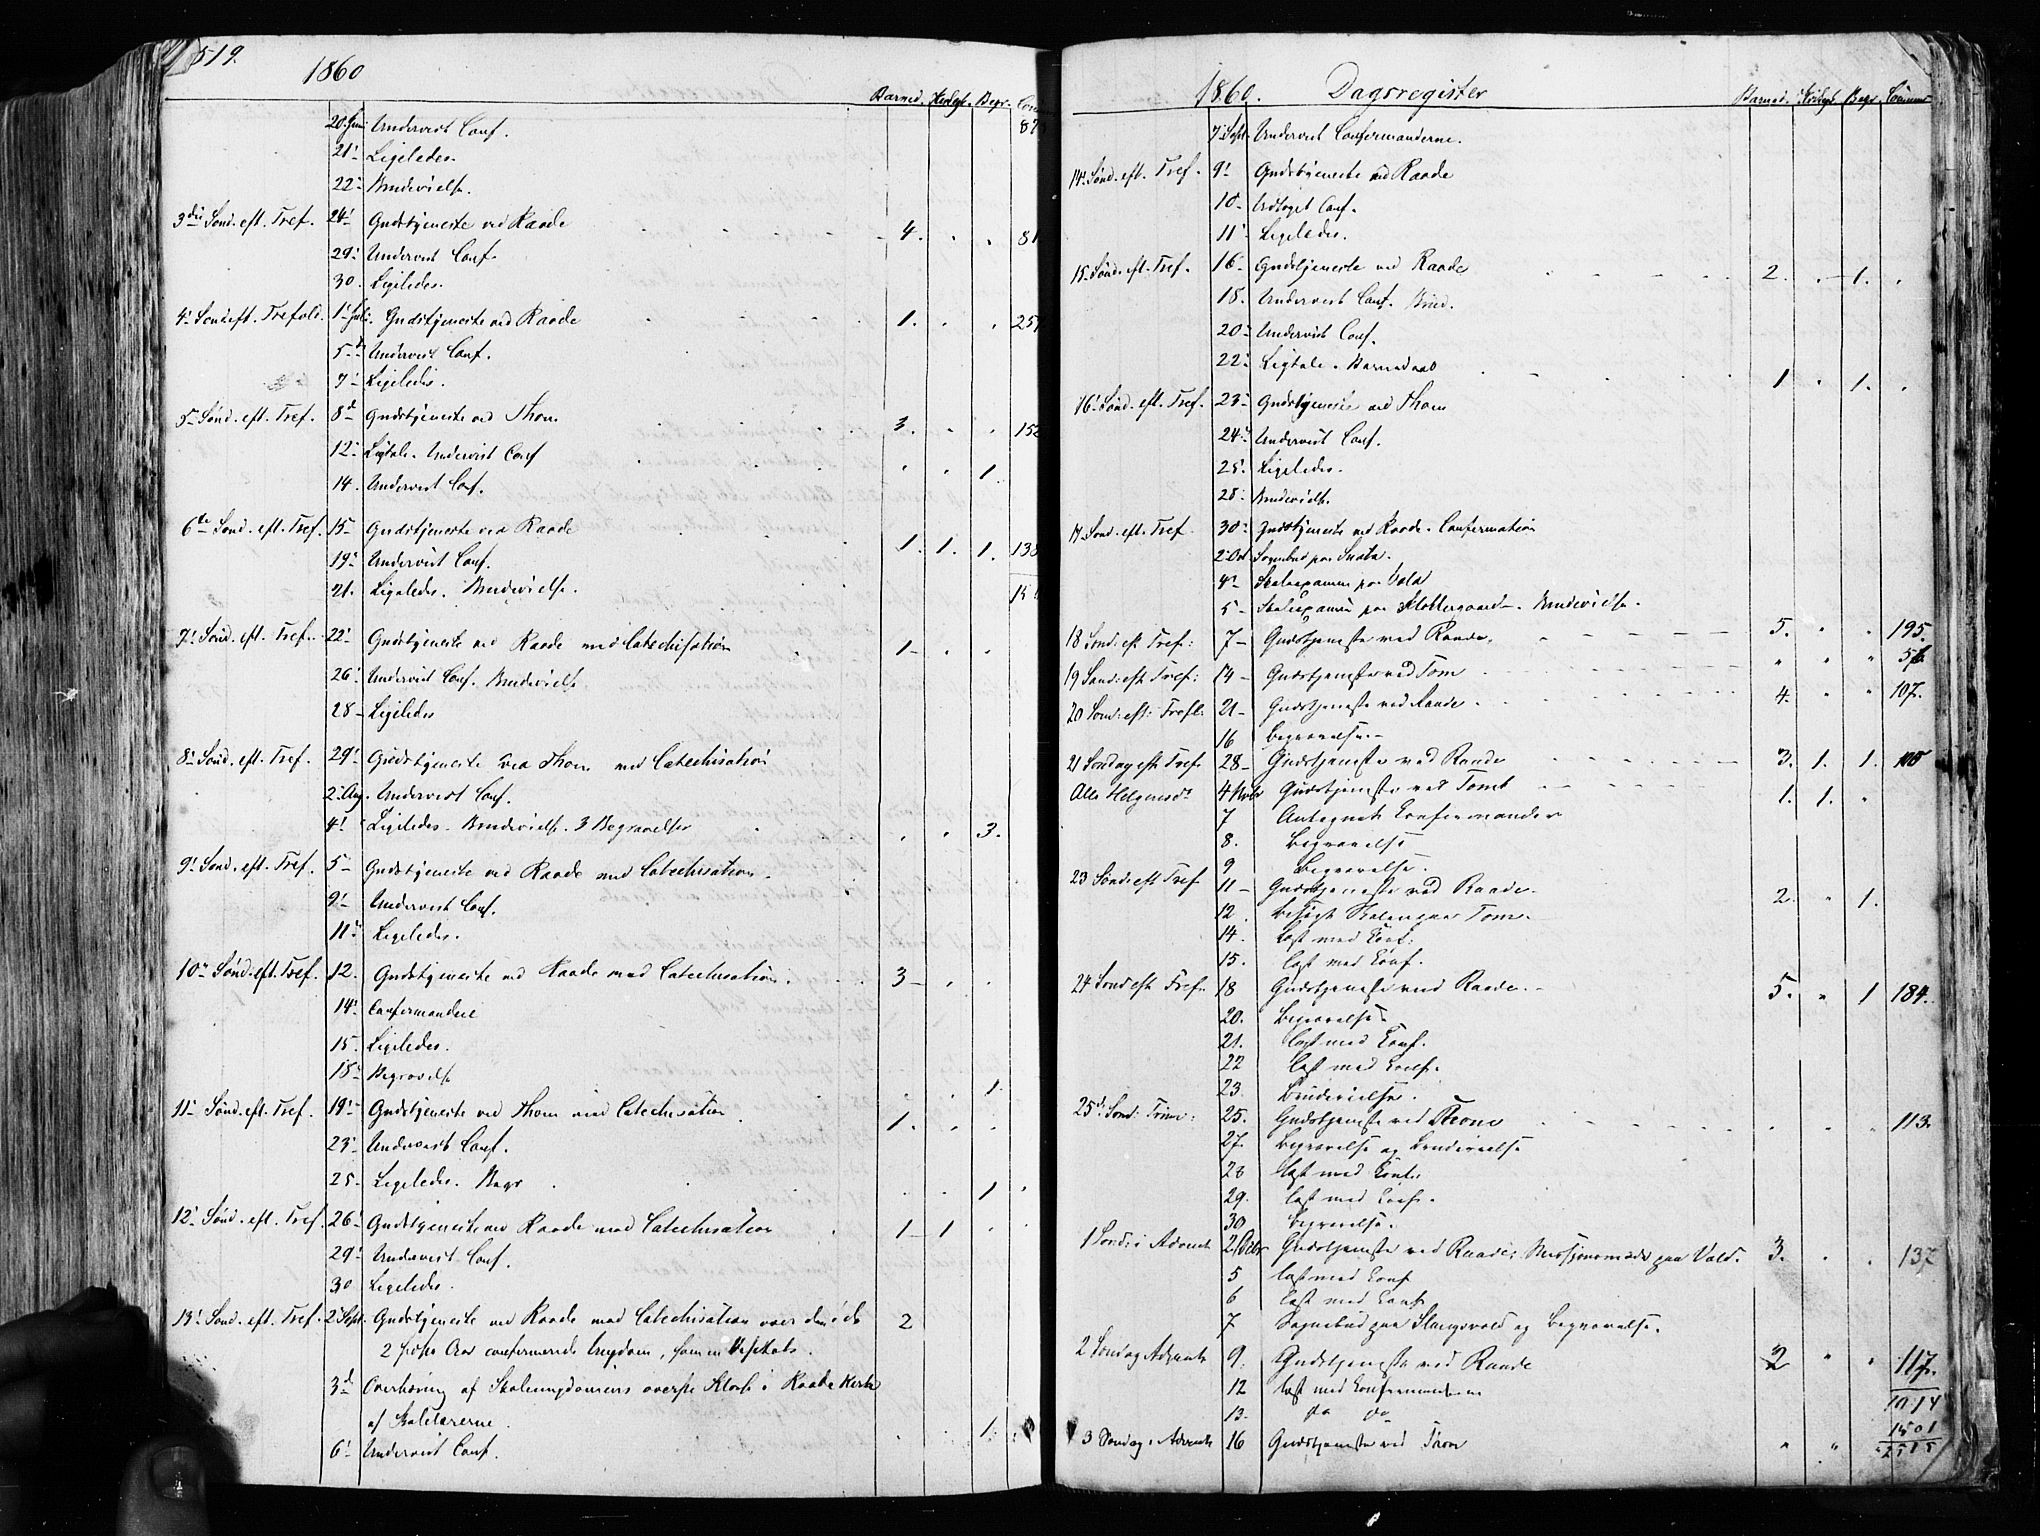 519.
1860
Barned. Begr.
20. Juni Undervist Conf. 87
21' Ligeledes.
22' Brudevielse.
3die Sønd. eft. Tref. 24' Gudstjeneste ved Raade 4. " " 81
29' Undervist Conf.
30. Ligeledes.
4' Sønd. eft. Trefold. 1' Juli. Gudstjeneste ved Raade 1. " " 251
5 Undervist Conf.
7' Ligeledes.
5' Sønd. eft. Tref. 8d Gudstjeneste ved Thom 3. " " 152
12' Ligtale. Undervist Conf " " 1
14. Undervist Conf.
6te Sønd. eft. Tref. 15 Gudstjeneste ved Raade 1. 1. 1. 138
19' Undervist Conf.
21. Ligeledes. Brudevielse.
7' Sønd. eft. Tref. 22' Gudstjeneste ved Raade med Catechisation 1 " "
26' Undervist Conf. Brudevielse
28 Ligeledes
8' Sønd. eft. Tref. 29' Gudstjeneste ved Thom med Catechisation
2' Aug. Undervist Conf.
4' Ligeledes. Brudevielse. 3 Begravelser " " 3.
9' Sønd. eft. Tref. 5 Gudstjeneste ved Raade med Catechisation.
9' Undervist Conf.
11' Ligeledes.
10' Sønd. eft. Tref. 12. Gudstjeneste ved Raade med Catechisation. 3 " "
14' Confirmandere
15. Ligeledes.
18' Begravelse 1.
11' Sønd. eft. Tref. 19' Gudstjeneste ved Thom med Catechisation 1. " "
23' Undervist Conf.
25. Ligeledes. Begr " " 1
12' Sønd. eft. Tref. 26' Gudstjeneste ved Raade med Catechisation 1 1 " "
29' Undervist Conf.
30 Ligeledes.
13' Sønd. eft. Tref. 2' Sept. Gudstjeneste ved Raade med Catechisation over de i de 2
2 sidste Aar confirmerede Ungdom,
3d Overhøring af Skoleungdommens øverste Klasse i Raade Kirke
af Skolelærerne. 1.
6' Undervist Conf.
1860. Dagsregister
Barned. Begr. Commun
7' Sept. Undervist Confirmanderne.
14' Sønd. eft. Tref. 9' Gudstjeneste ved Raade
10 Antaget Conf.
11' Ligeledes.
15 Sønd. eft. Tref. 16 Gudstjeneste ved Raade 2. " 1. "
18. Undervist Conf. Brud.
20 Undervist Conf.
22' Ligtale. Barnedaab 1 " 1. "
16' Sønd. eft. Tref. 23' Gudstjeneste ved Thom
24' Undervist Conf.
25' Ligeledes.
28' Brudevielse.
17 Sønd. eft. Tref. 30' Gudstjeneste ved Raade. Confirmation
2' Oct Sognebud paa
4' Skoleexamen paa Vold
5 Skoleexamen paa Kloktergaard. Brudevielse.
18 Sønd: eft Tref: 7 Gudstjeneste ved Raade. 5. " " 195.
19 Sønd: eft Tref: 14 Gudstjeneste ved Tom " " "
20 Sønd: eft: Trefl: 21 Gudstjeneste ved Raade. 4. " " 107.
16 Begravelse.
21 Søndag eft Tref. 28 Gudstjeneste ved Raade 3. 1. 1.
Alle Helgensd. 4 Nvbr Gudstjeneste ved Tomb 1. 1. "
7 Antegnet Confirmander
8. Begravelse
9 Begravelse.
23 Sønd: eft Tref 11 Gudstjeneste ved Raade. 2. " 1.
12. Besøgt Skolen paa Tom.
14. Læst med Conf:
15. Læst med Conf.
24 Sønd eft Tref. 18 Gudstjeneste ved Raade. 5. " 1 184.
20. Begravelse.
21. Læst med Conf.
22 Læst med Conf.
23. Brudevielse.
25d. Sønd: Trin: 25. Gudstjeneste ved " " " 113.
27. Begravelse og Brudevielse
28 Læst med Conf:
29. Læst med Conf.
30 Begravelse.
1 Sønd: i Advent 2 Dcbr Gudstjeneste ved Raade; Missionsmøde paa Vold. 3. " " 137
5 Læst med Conf
6 Læst med Conf
7 Sognebud paa Slangsvold og Begravelse.
2 Søndag Advent 9. Gudstjeneste ved Raade 2 " " 117.
12 Læst med Confirmanderne 1014
13. do do 1501
3 Søndag i Advent 16 Gudstjeneste ved Thom " " 2515